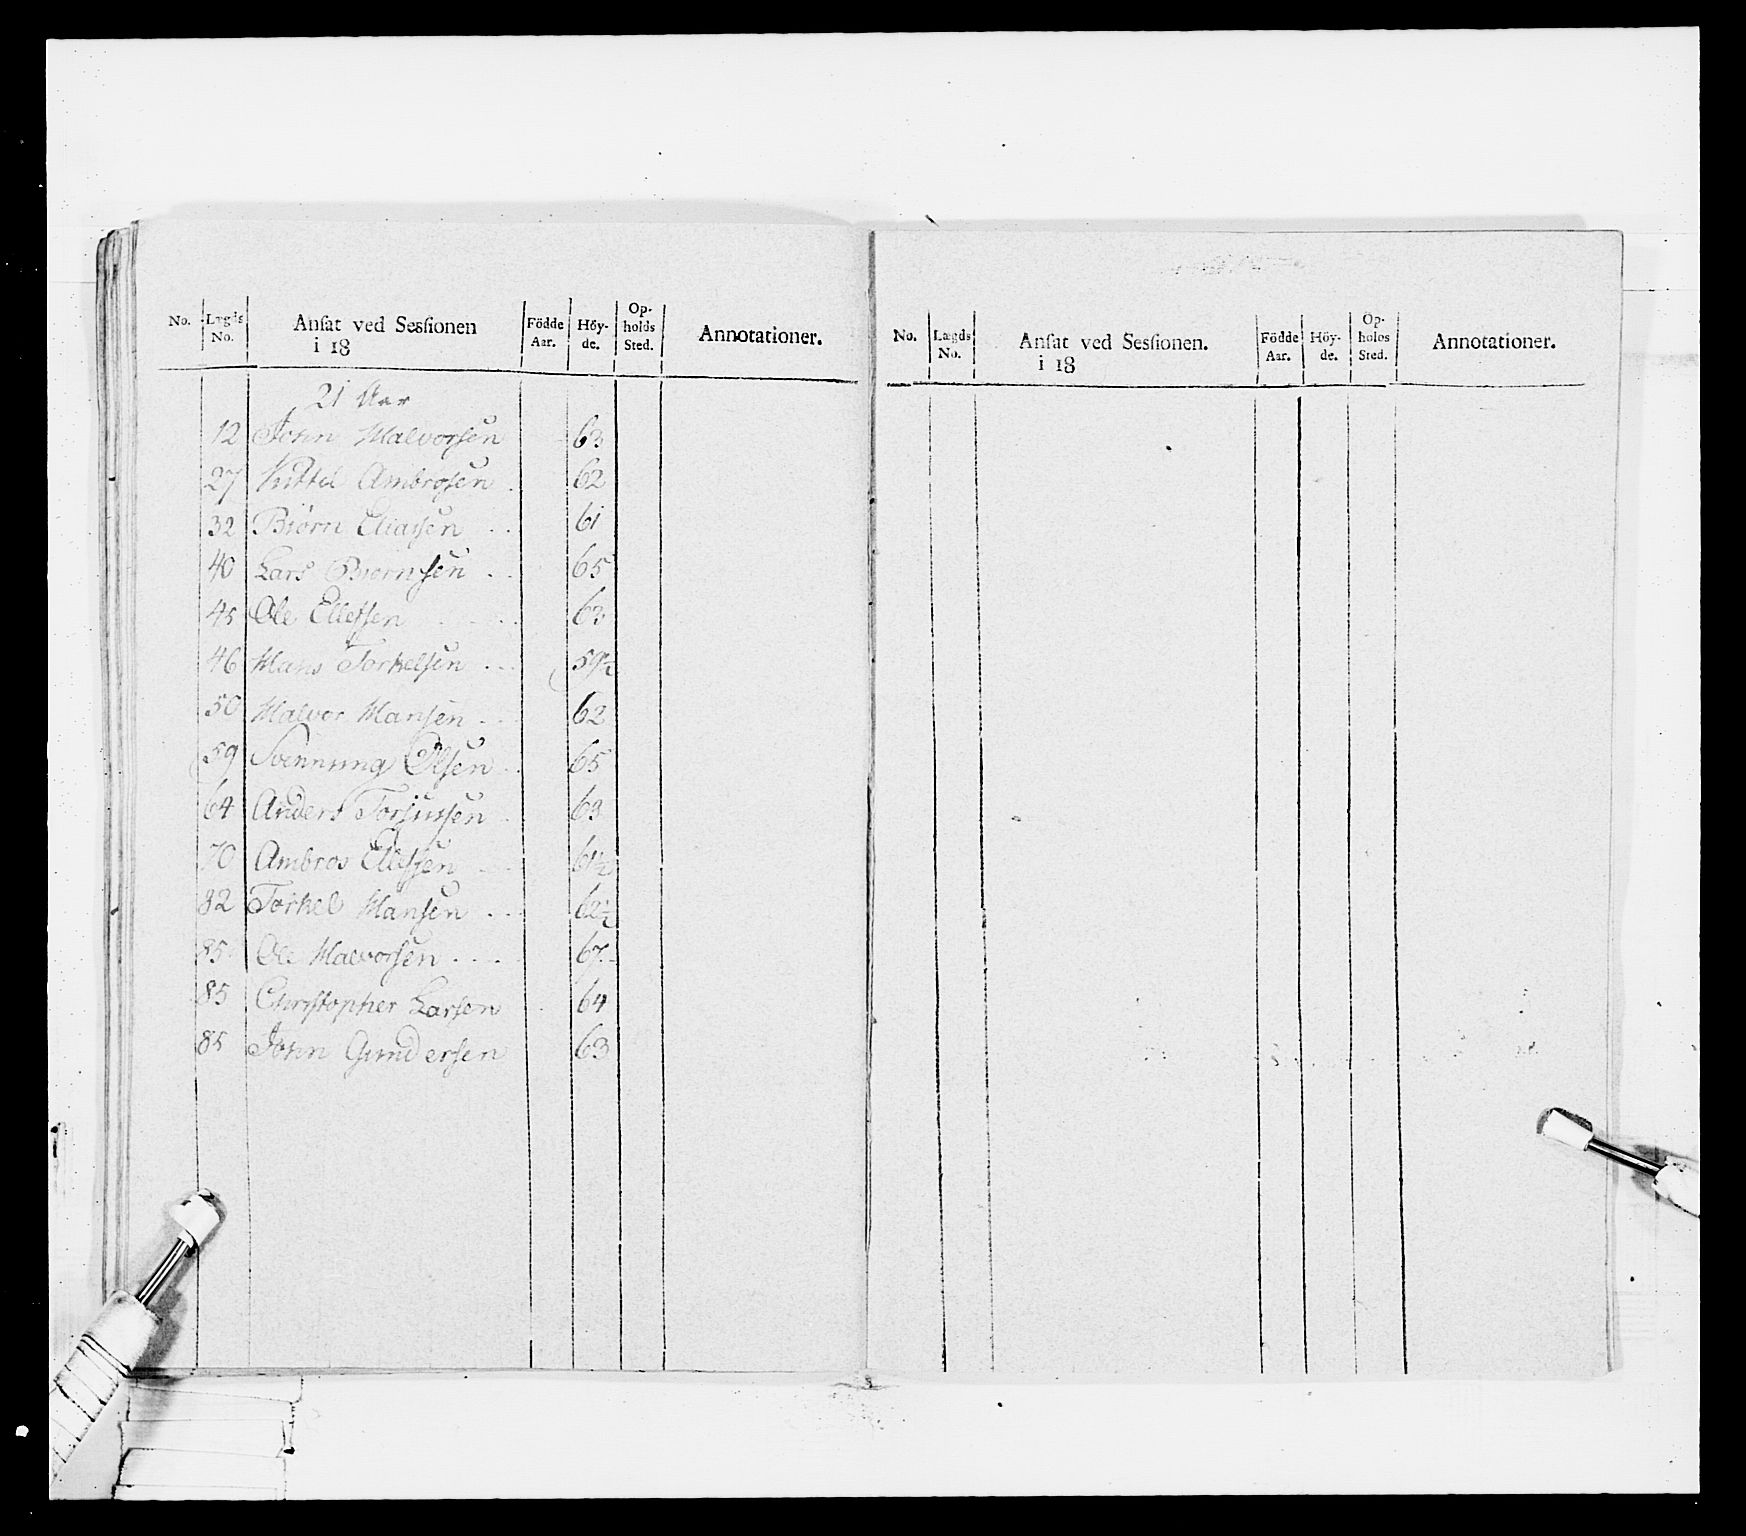 No. Lægds No. Ansat ved Sessionen i 18 Födde Aar. Höy-de. Op-holds Sted. Annotationer.
21 Aar
12 John Halvorsen 63
27 Kittel Ambrosen 62
32 Biörn Eliassen 61
40 Lars Biörnsen 65
45 Ole Ellefsen 63
46 Hans Torkelsen 59½
50 Halvor Hansen 62
59 Svennung Olsen 65
64 Anders Torjussen 63
70 Ambros Ellefsen 61½
82 Torkel Hansen 62½
85 Ole Halvorsen 67
85 Christopher Larsen 64
85 John Gundersen 63
No. Lægds No. Ansat ved Sessionen. i 18 Födde Aar. Höy-de. Op-holds Sted. Annotationer.